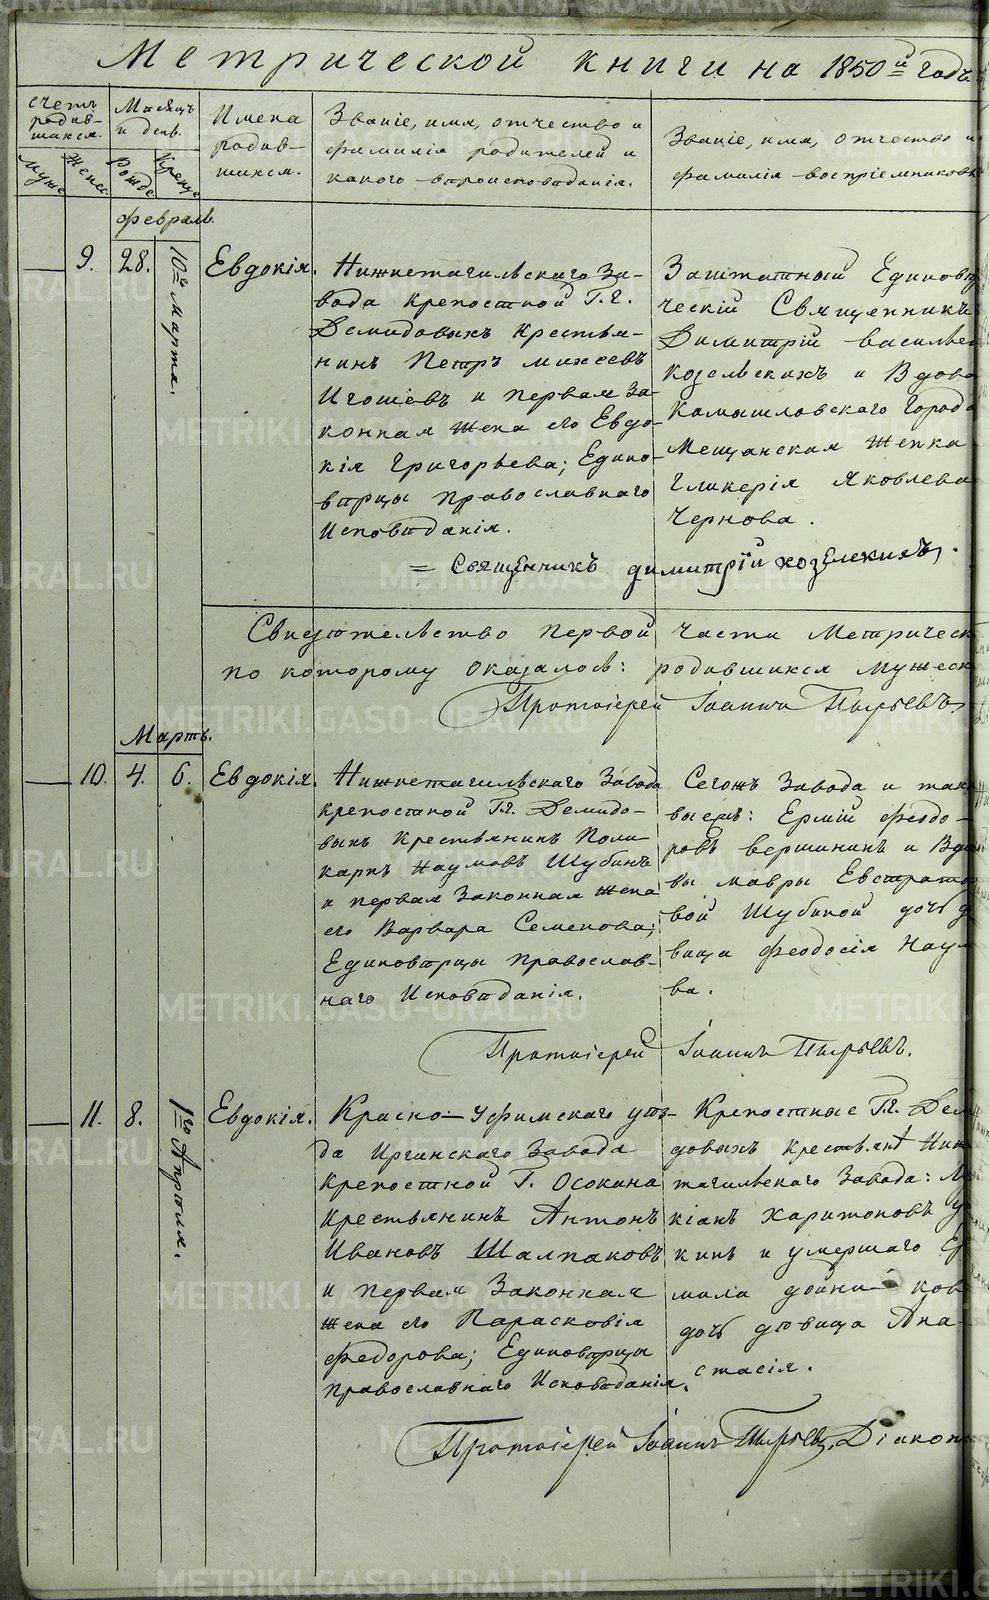 Метрической книги на 1850й годъ
счетъ родив-шихся.
Мужс Женс
Месяцъ и день.
Рожде Креще
Имена родив-шихся.
Званіе, имя, отчество и
фамилія родителей и
какого вѣроисповѣданія.
Званіе, имя, отчество и
фамилія воспріемниковъ
февраль.
9. 28. 10го марта. Евдокія.
Нижнетагильскаго За-
вода крепостной Г.г.
Демидовыхъ Крестья-
нинъ Петръ михеевъ
Игошевъ и первая за-
конная жена его Евдо-
кія Григорьева; Едино-
вѣрцы православнаго
Исповѣданія.
Заштатный Единовѣ
ческій Священникъ
Димитрій васильев
козельскихъ и Вдова
Камышловскаго Города
Мещанская женка
Гликерія Яковлева
Чернова.
= Священникъ димитрїй козелскихъ.
Свидѣтельство первой части Метрическ
по которому оказалось: родившихся мужеск
Протоіерей Іоаннъ Пырьевъ.
Мартъ.
10. 4. 6. Евдокія.
Нижнетагильскаго Завода
крепостной Г.г. Демидо-
выхъ Крестьянинъ Поли-
карпъ Наумовъ Шубинъ
и первая Законная жена
его Варвара Семенова;
Единовѣрцы православ-
наго Исповѣданія.
Сегожъ Завода и так
выехъ: Ермій Феодо-
ровъ вершининъ и Вдо
вы мавры Евстрато
вой Шубиной дочь д
вица Феодосія Наум
ва.
Протоіерей Іоаннъ Пырьевъ.
11. 8. 1го Апреля. Евдокія.
Красно-Уфимскаго уѣз-
да Иргинскаго Завода
крепостной Г. Осокина
Крестьянинъ Антонъ
Ивановъ Шалпаковъ
и первая Законная
жена его Парасковія
Федорова; Единовѣрцы
православнаго Исповѣданія.
Крепостные Г.г. Дем
довыхъ крестьяне Ниж
тагильскаго Завода: Лу
кіанъ Харитоновъ У
кинъ и умершаго Ер
мила дочь дѣвица Ана
стасія.
Протоіерей Іоаннъ Пырьевъ, Діаконъ
METRIKI.GASO-URAL.RU